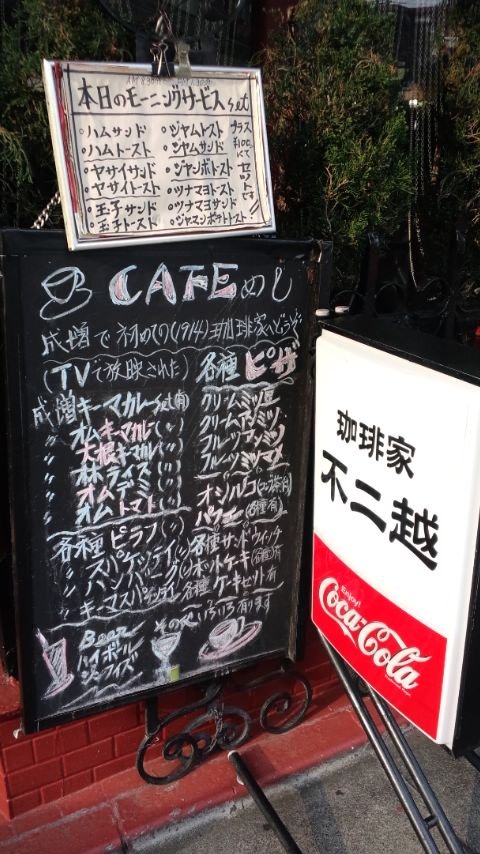 本日のモーニングサービスset
ハムサンド
ハムトースト
ヤサイサンド
ヤサイトースト
玉子サンド
玉子トースト
ジャムトースト
ジャムサンド
ジャンボトースト
ツナマヨトースト
ツナマヨサンド
ジャーマンポテトトースト
プラス
¥100
にて
セットです!!
CAFEめし
成増で初めての(1914)珈琲家へどうぞ
(TVで放映された)
成増キーマカレーset(有)
〃オムキーマカレー(〃)
〃大根キーマカレー(〃)
〃林ライス(〃)
〃オムデミ(〃)
〃オムトマト(〃)
各種ピラフ(〃)
〃スパゲッティ(〃)
〃ハンバーグ(〃)
各種ピザ
クリームミツ豆
クリームアンミツ
フルーツアンミツ
フルーツミツマメ
オシルコ
バウエー(各種有)
各種サンドウィッチ
ホットケーキ(各種)有
各種ケーキセット有
その他いろいろ有ります
Beer
ハイボール
ジンフィズ
珈琲家
不二越
Enjoy!
Coca-Cola